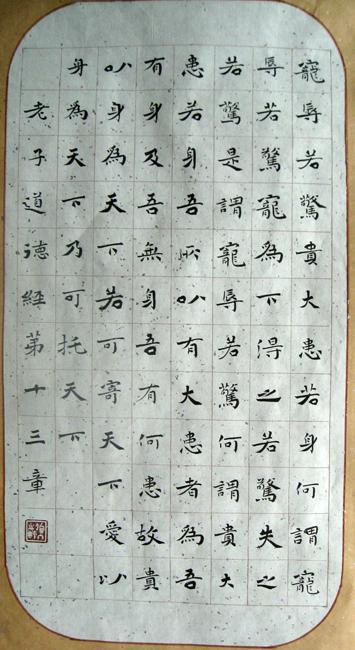 寵辱若驚貴大患若身何謂寵
辱若驚寵為下得之若驚失之
若驚是謂寵辱若驚何謂貴大
患若身吾所以有大患者為吾
有身及吾無身吾有何患故貴
以身為天下若可寄天下愛以
身為天下乃可托天下
老子道德經苐十三章